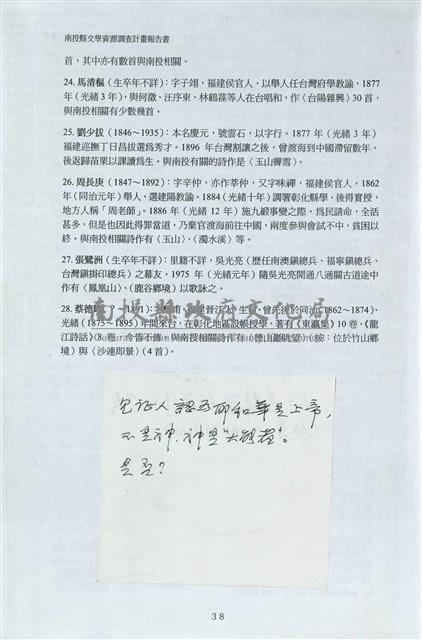 南投縣文學資源調查計畫報告書
首，其中亦有數首與南投相關。
24. 馬清樞（生卒年不詳）：字子翊，福建侯官人，以舉人任台灣府學教諭，1877
年（光緒3年），與何澂、汪序東、林鶴蓀等人在台唱和，作〈台陽雜興〉30首，
與南投相關亦有少數幾首。
25. 劉少拔（1846～1935）：本名慶元，號雲石，以字行。1877年（光緒3年）
福建巡撫丁日昌拔選為秀才。1896年台灣割讓之後，曾渡海到中國滯留數年，
後返歸苗栗以課讀為生。與南投有關的詩作是〈玉山霽雪〉。
26. 周長庚（1847～1892）：字辛仲，亦作莘仲，又字味禪，福建侯官人。1862
年（同治元年）舉人，選建陽教諭。1884（光緒十年）調署彰化縣學，後得實授，
地方人稱「周老師」。1886年（光緒12年）施九緞事變之際，為民請命，全活
甚多，但是也因此得罪當道，乃棄官渡海前往中國，兩度參與會試不中，貧困以
終。與南投相關詩作有〈玉山〉、〈濁水溪〉等。
27. 張鷺洲（生卒年不詳）：里籍不詳，吳光亮（歷任南澳鎮總兵、福寧鎮總兵、
台灣鎮掛印總兵）之幕友，1975年（光緒元年）隨吳光亮開通八通關古道途中
作有〈鳳凰山〉、〈鹿谷鄉境〉以歌詠之。
28. 蔡德 福建晉江人 生員，曾先後於同治（1862～1874）、
光緒（1875～1895）年間來台，在彰化地區設帳授學，著有《東瀛集》10卷、《龍
江詩話》8卷，今皆不傳。與南投相關詩作有〈德山巖眺望〉（按：位於竹山鄉
境）與〈沙連即景〉（4首）。
南投縣政府文化局
见证人認为耶和華是上帝，
不是神．神是“大能者”。
是否？
38